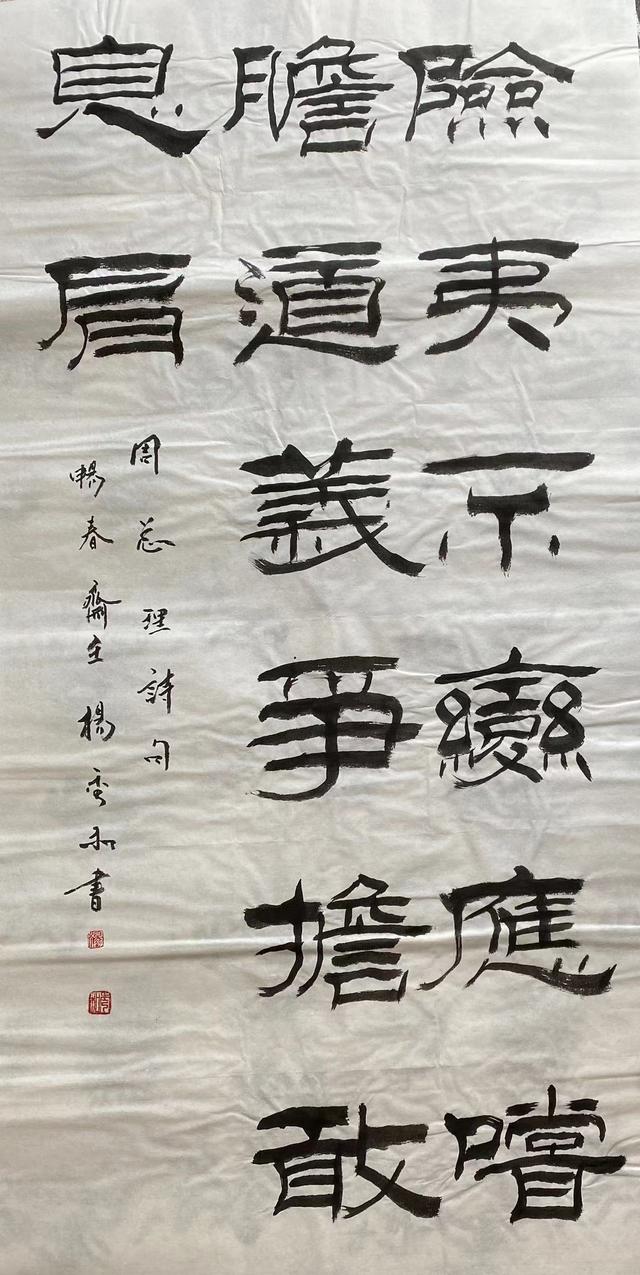 險夷不變應嚐
膽道義爭擔敢
息肩
周总理詩句
暢春齋主楊雲和書